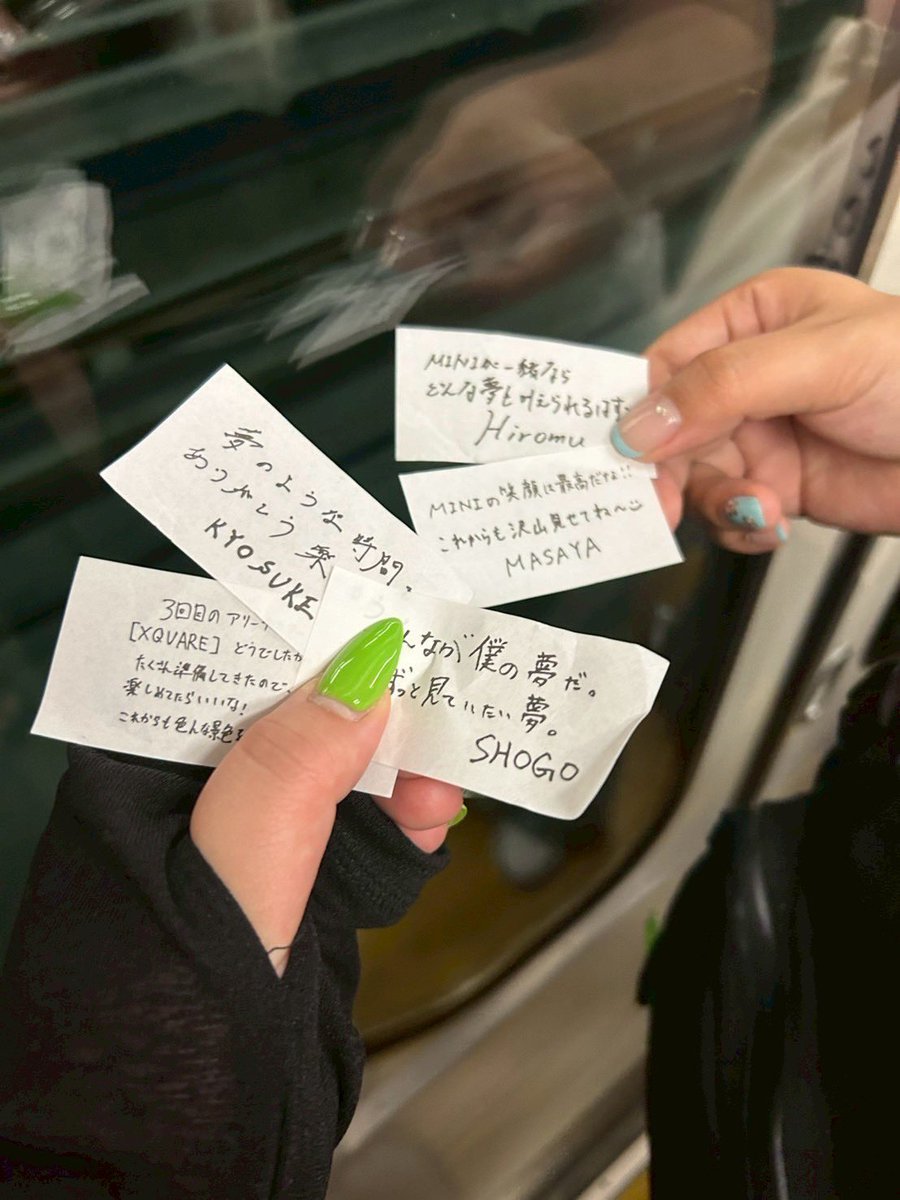 MINIが一緒なら
どんな夢も叶えられるはず
Hiromu
MINIの笑顔は最高だな!!
これからも沢山見せてね〜
MASAYA
夢のような時間。
ありがとう
KYOSUKE
3回目のアリー
[XQUARE] どうでしたか
たくさん準備してきたので、
楽しめてたらいいな!
これからも色んな景色
んなが、僕の夢だ。
ずっと見ていたい夢。
SHOGO